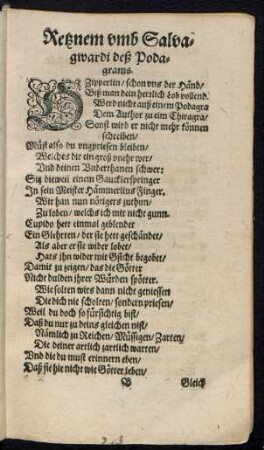 Retznem vmb Salva-
gwardi deß Poda-
grams.
O Zipperlin/ schon vns der Händ/
Biß man dein herrlich Lob vollend.
Werd nicht auß einem Podagra
Dem Author zu eim Chiragra/
Sonst wird er nicht mehr können
schreiben/
Müst also du vngpriesen bleiben/
Welchs dir ein groß vnehr wer/
Vnd deinen Underthanen schwer:
Sitz dieweil einem Gaucklerspringer
In sein Meister Hämmerlins Finger.
Wir han nun nötigers zuthun/
Zu loben/ welchs ich mir nicht gunn.
Cupido hett einmal geblendet
Ein Glehrten/ der sie hett geschändet/
Als aber er sie wider lobet/
Hats ihn wider mit Gsicht begobet/
Damit zu zeigen/ das die Götter
Nicht dulden ihrer Würden spötter.
Wie solten wirs dann nicht geniessen
Die dich nie scholten/ sondern priesen/
Weil du doch so fürsichtig bist/
Daß du nur zu deins gleichen nist/
Nämlich zu Reichen/ Müssigen/ Zarten/
Die deiner artlich zartlich warten/
Vnd die du must erinnern eben/
Daß sie hie nicht wie Götter leben/
B Gleich